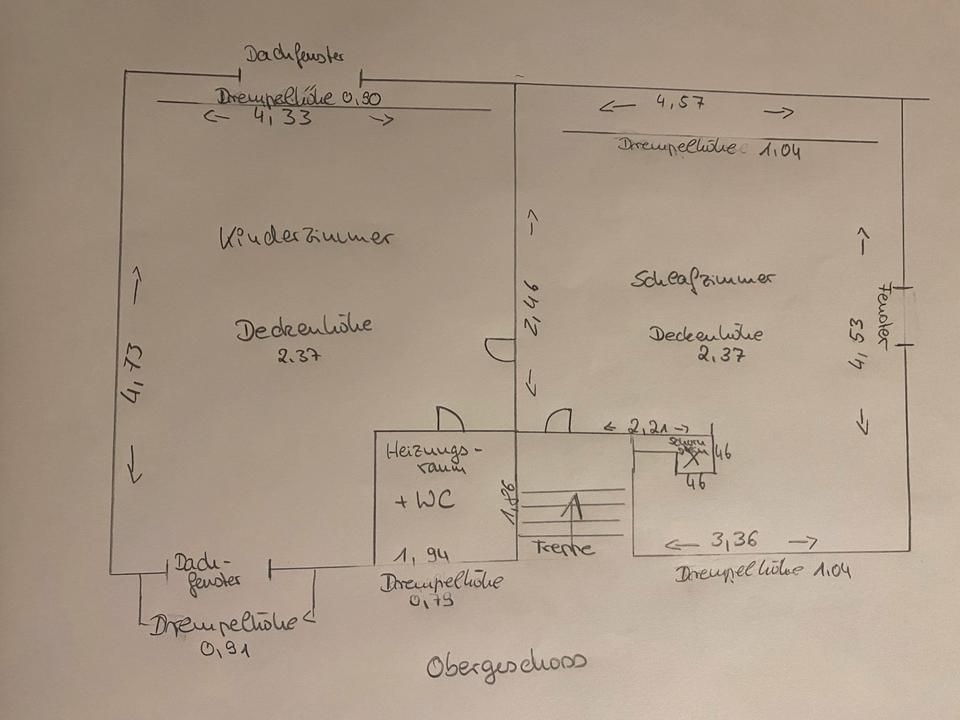 Dachfenster
Drempelhöhe 0,90
4,33
4,57
Drempelhöhe 1,04
Kinderzimmer
Deckenhöhe
2.37
4,73
2,46
Schlafzimmer
Deckenhöhe
2,37
Fenster
4,53
2,21
Schorn
stein
46
46
Heizungs-
raum
+ WC
1,86
1,94
Drempelhöhe
0,79
Treppe
3,36
Drempelhöhe 1,04
Dach-
fenster
Drempelhöhe
0,91
Obergeschoss